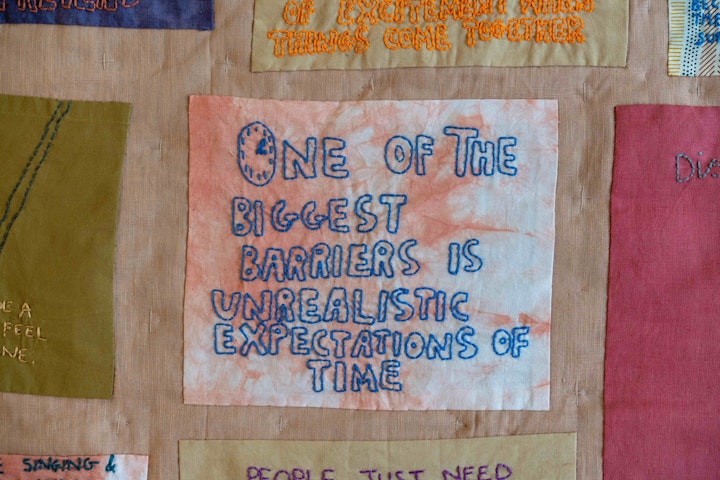 OF EXCITEMENT WHEN
THINGS COME TOGETHER
ONE OF THE
BIGGEST
BARRIERS IS
UNREALISTIC
EXPECTATIONS OF
TIME
A
FEEL
SINGING &
PEOPLE JUST NEED